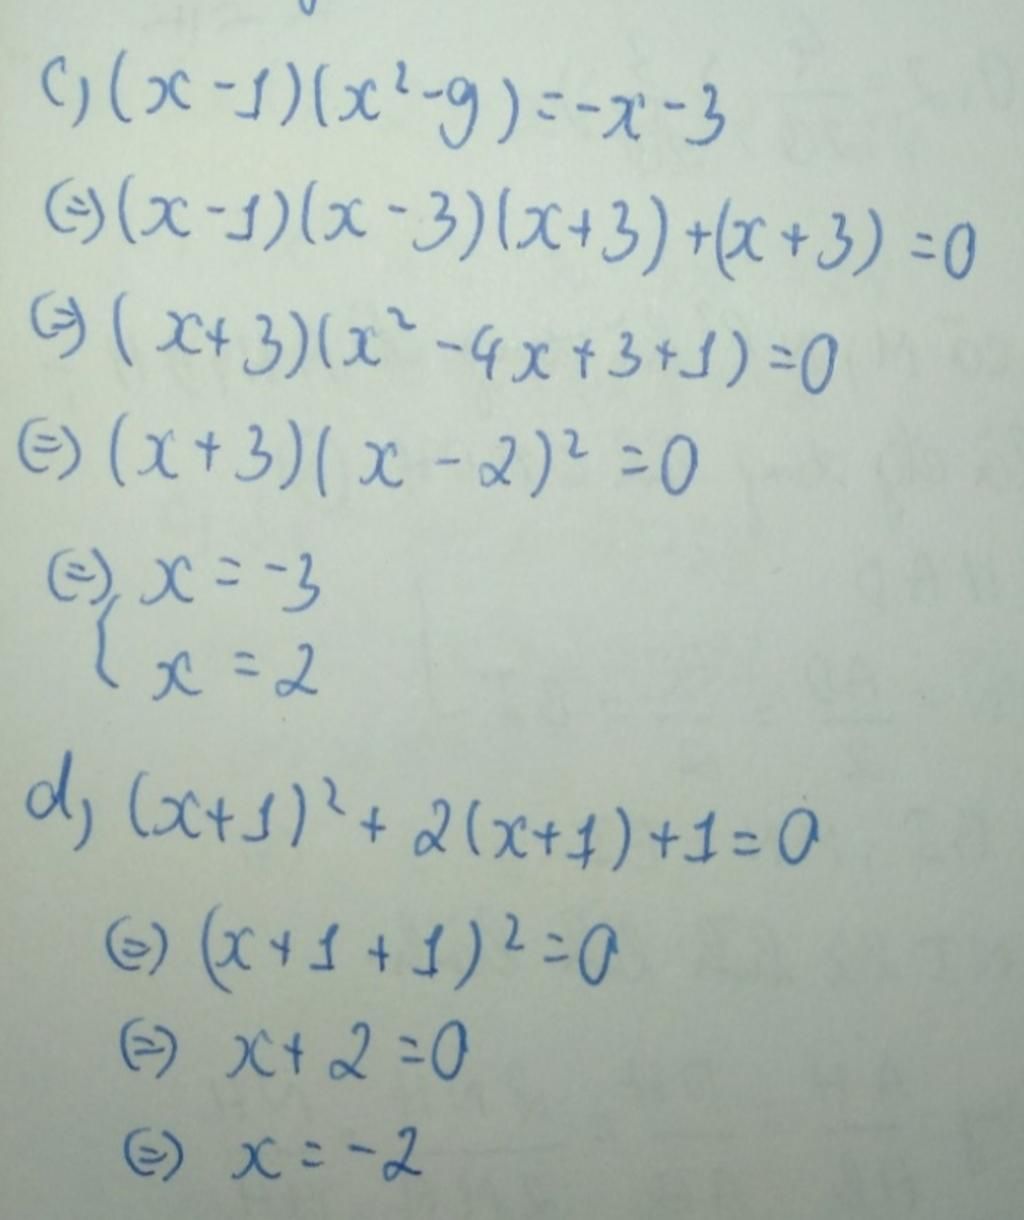 c, (x-1)(x²-9)=-x-3
(=) (x-1)(x-3)(x+3)+(x+3)=0
(=) (x+3)(x²-4x+3+1)=0
(=) (x+3)(x-2)²=0
(=) { x=-3
x=2
d, (x+1)²+2(x+1)+1=0
(=) (x+1+1)²=0
(=) x+2=0
(=) x=-2